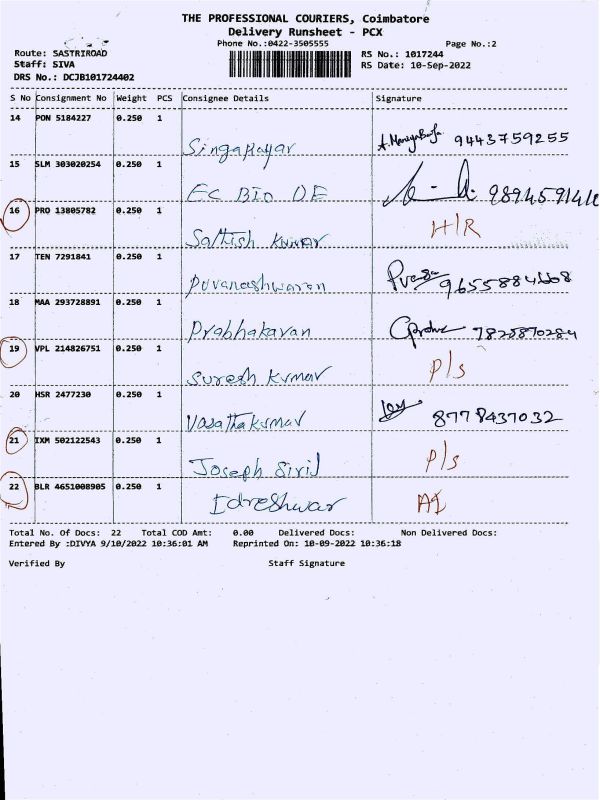 THE PROFESSIONAL COURIERS, Coimbatore
Delivery Runsheet - PCX
Phone No.:0422-3505555 Page No.:2
Route: SASTRIROAD RS No.: 1017244
Staff: SIVA RS Date: 10-Sep-2022
DRS No.: DCJB101724402
S No Consignment No Weight PCS Consignee Details Signature
14 PON 5184227 0.250 1
Singarayar 9443759255
15 SLM 303020254 0.250 1
EC BIO DE
16 PRO 13805782 0.250 1
Sathish Kumar H/R
17 TEN 7291841 0.250 1
Puvaneshwaran 9655884668
18 MAA 293728891 0.250 1
Prabhakaran 7825870284
19 VPL 214826751 0.250 1
Suresh Kumar P/s
20 HSR 2477230 0.250 1
Vasathakumar 8778437032
21 IXM 502122543 0.250 1
Joseph Siril P/s
22 BLR 4651008905 0.250 1
Idreshwar
Total No. Of Docs: 22 Total COD Amt: 0.00 Delivered Docs: Non Delivered Docs:
Entered By :DIVYA 9/10/2022 10:36:01 AM Reprinted On: 10-09-2022 10:36:18
Verified By Staff Signature